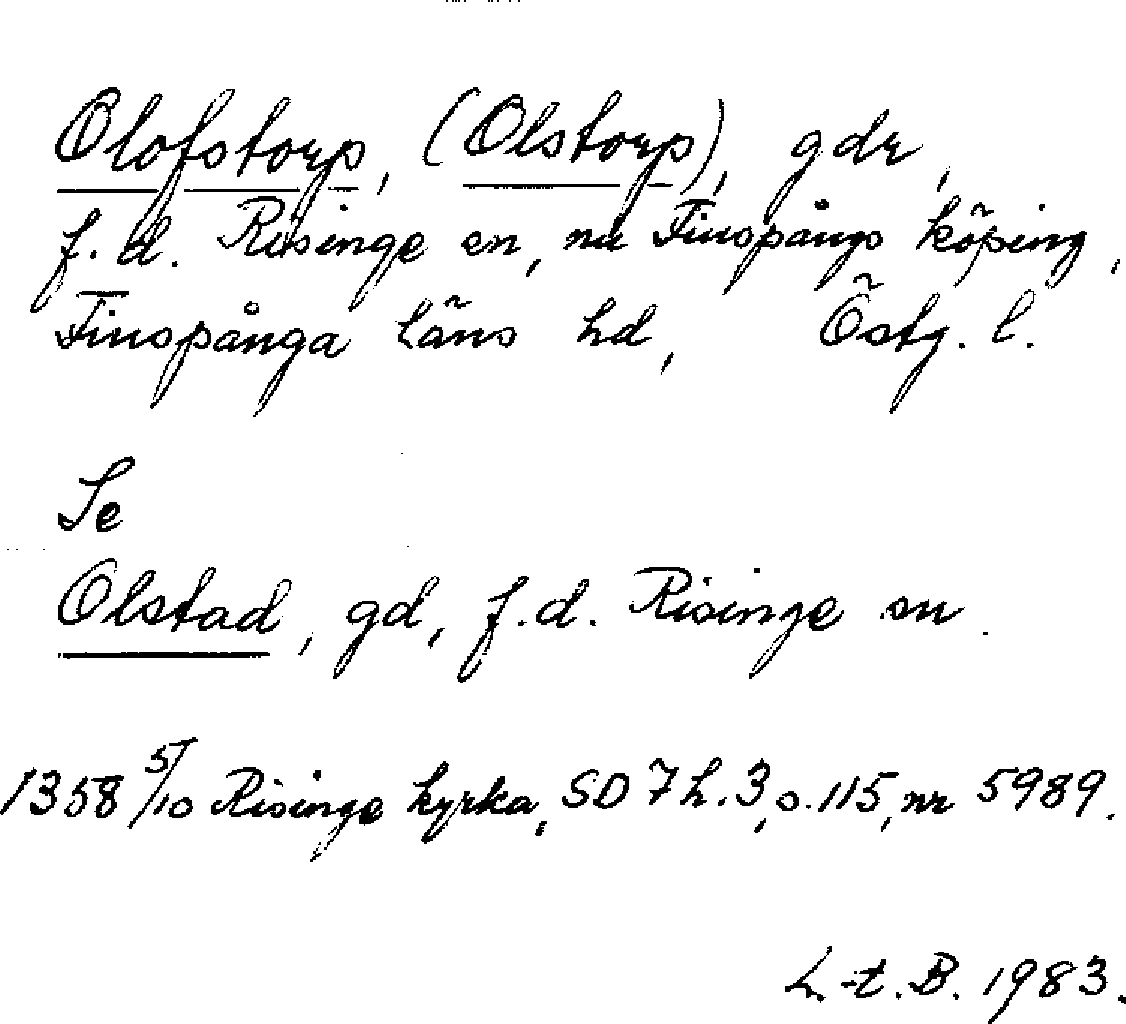 Olofstorp, (Olstorp), gdr,
f.d. Risinge sn, nu Finspångs köping,
Finspånga läns hd, Östg. l.
Se
Olstad, gd, f.d. Risinge sn.
1358 5/10 Risinge kyrka, SD 7 h.3, s.115, nr 5989.
L-t. B. 1983.